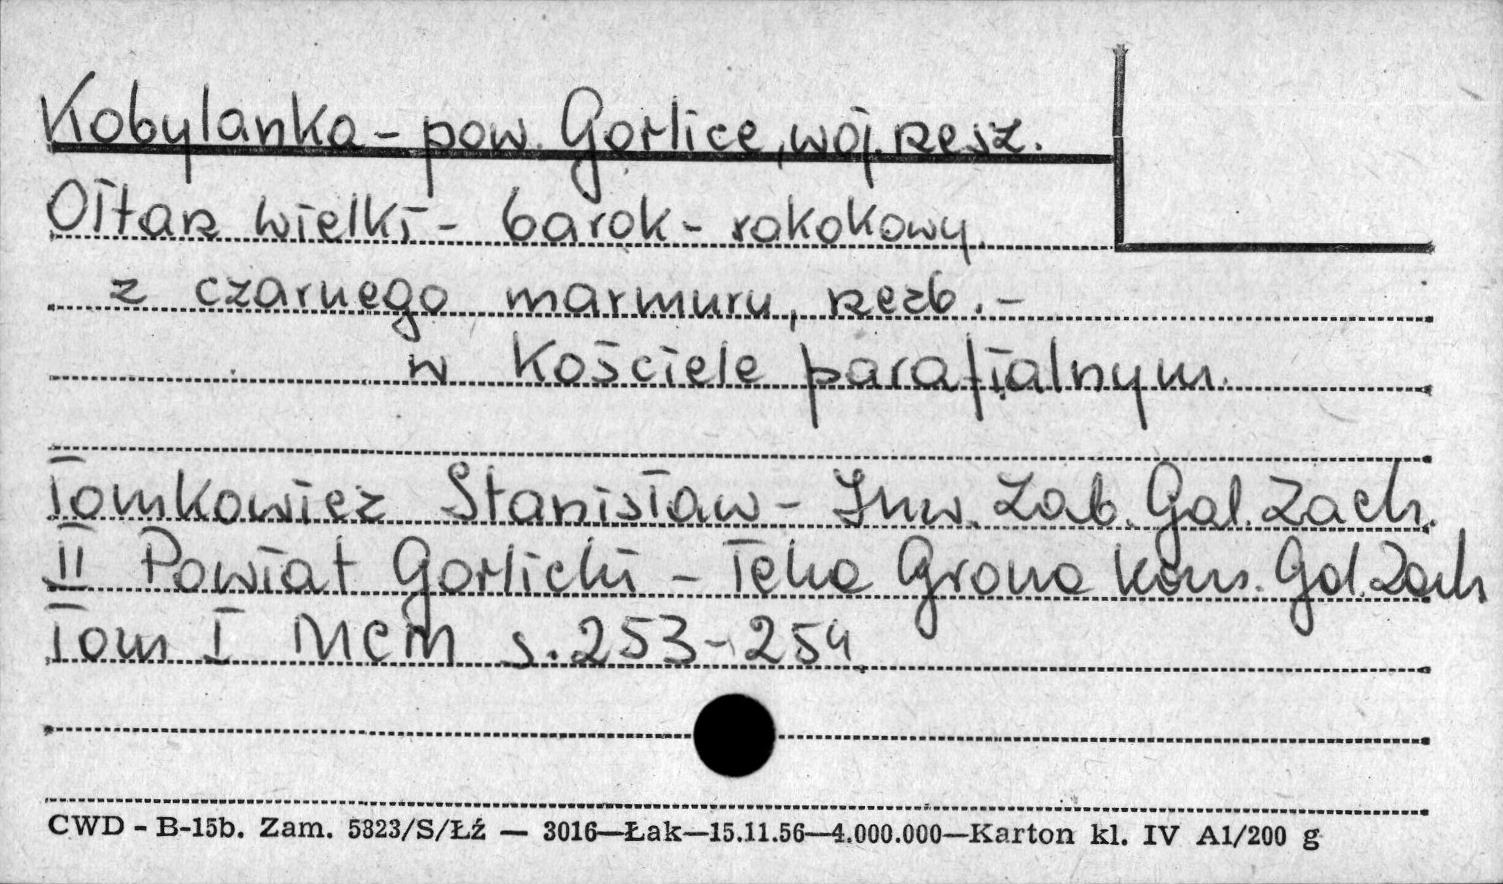 Kobylanka - pow. Gorlice, woj. rzesz.
Ołtarz wielki - barok - rokokowy
z czarnego marmuru, rzeźb. -
w Kościele parafialnym.
Tomkowicz Stanisław - Inw. Zab. Gal. Zach.
II Powiat Gorlicki - Teka Grona Kons. Gal. Zach
Tom I MCM s. 253-254.
CWD - B-15b. Zam. 5823/S/Łź — 3016—Łak—15.11.56—4.000.000—Karton kl. IV A1/200 g